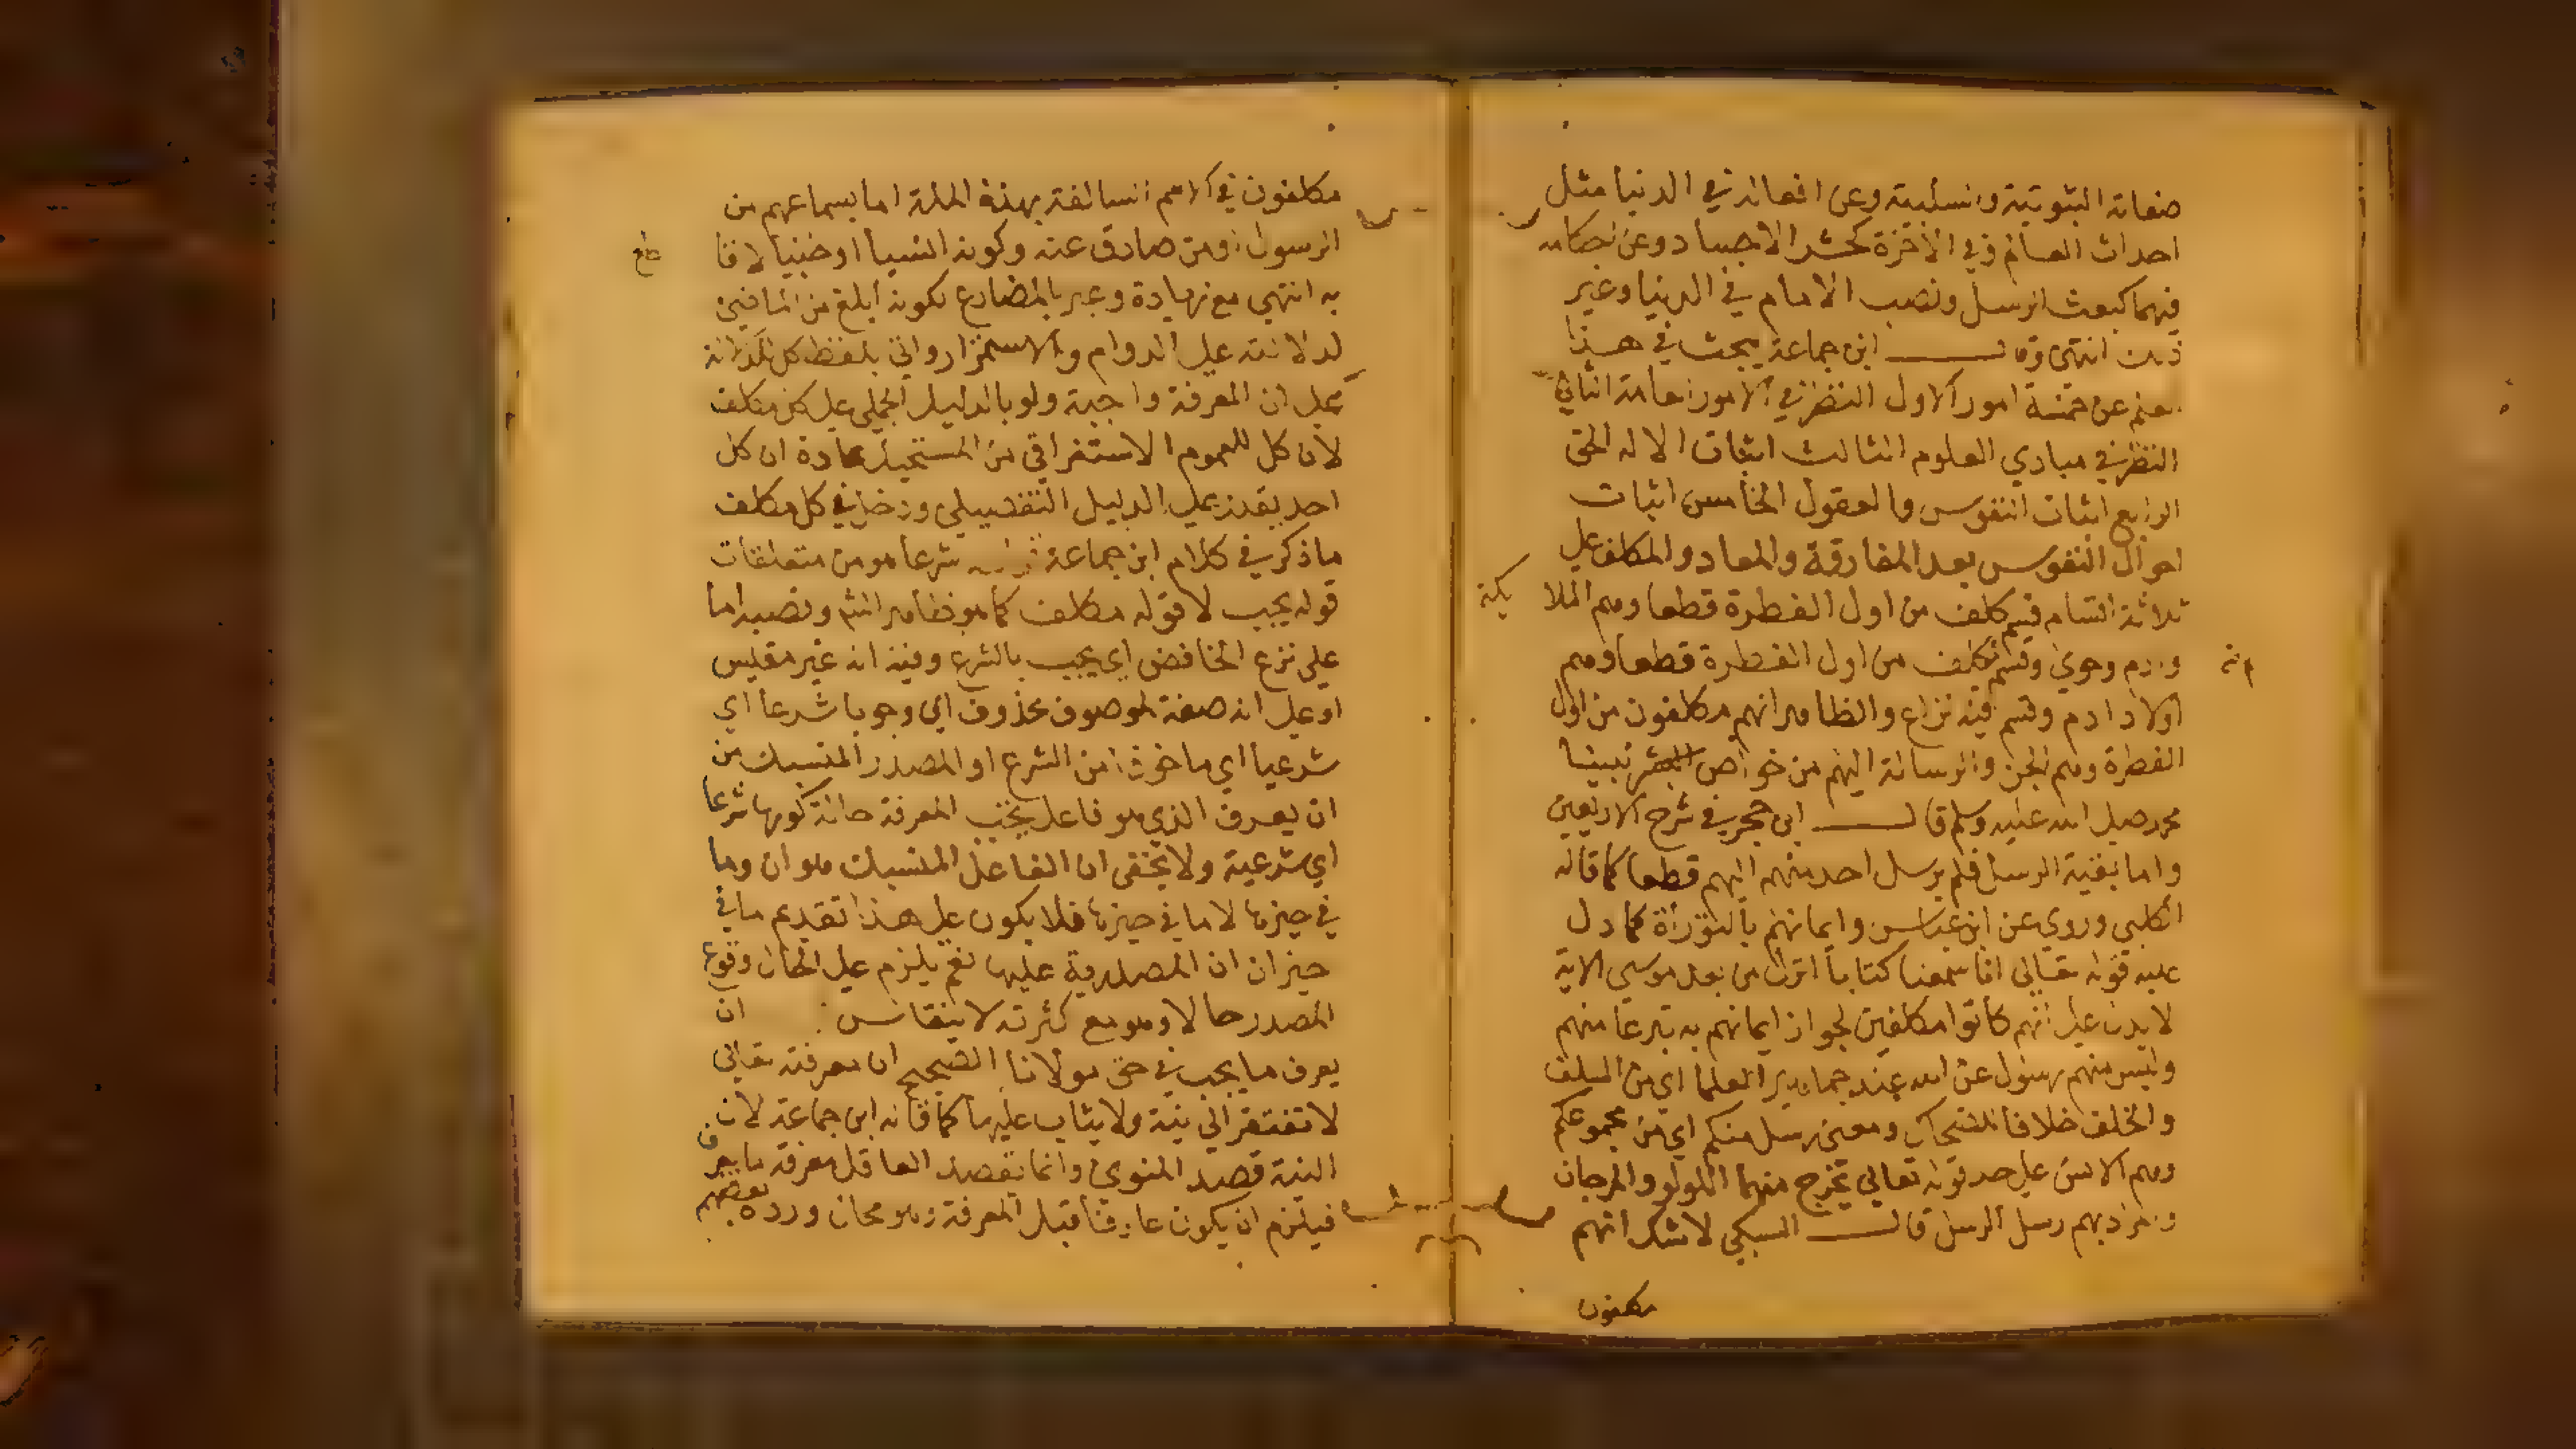 صفاته الثبوتية والسلبية وعن افعاله في الدنيا مثل
احداث العالم وفي الاخرة كحشر الاجساد وعن احكامه
فيهما كبعث الرسل ونصب الامام في الدنيا وغير
ذلك انتهى وقال ابن جماعة يبحث في هذا
العلم عن خمسة امور الاول النظر في الامور العامة الثاني
النظر في مبادي العلوم الثالث اثبات الاله الحق
الرابع اثبات النفوس والعقول الخامس اثبات
احوال النفوس بعد المفارقة والمعاد والمكلف على
ثلاثة اقسام قسم كلف من اول الفطرة قطعا وهم الملا
يكة
وادم وحوي وقسم لم يكلف من اول الفطرة قطعا وهم
اولاد ادم وقسم فيه نزاع والظاهر انهم مكلفون من اول
الفطرة وهم الجن والرسالة اليهم من خواص نبينا
محمد صلى الله عليه وسلم قال ابن حجر في شرح الاربعين
واما بقية الرسل فلم يرسل احد منهم اليهم قطعا كما قاله
الكلبي وروي عن ابن عباس وايمانهم بالتوراة كما دل
عليه قوله تعالى انا سمعنا كتابا انزل من بعد موسى الاية
لا يدل على انهم كانوا مكلفين لجواز ايمانهم به تبرعا منهم
وليس منهم رسول عن الله عند جماهير العلما اي من السلف
والخلف خلافا للضحاك ومعنى رسل منكم اي من مجموعكم
وهم الانس على حد قوله تعالى يخرج منهما اللولو والمرجان
والمراد بهم رسل الرسل قال السبكي لا شك انهم
مكلفون
مكلفون في الامم السالفة بهذه الملة اما بسماعهم من
الرسول او من صادق عنه وكونه انسيا او جنيا لا قا
طع
به انتهى مع زيادة وعبر بالمضارع لكونه ابلغ من الماضي
لدلالته على الدوام والاستمرار واتى بلفظ كل
على ان المعرفة واجبة ولو بالدليل الجملي على كل مكلف
لان كل للعموم الاستغراقي من المستحيل عادة ان كل
احد يقدر على الدليل التفصيلي ودخل في كل مكلف
ما ذكر في كلام ابن جماعة قوله شرعا هو من متعلقات
قوله يجب لا قوله مكلف كما هو ظاهر الشر ونصبه اما
على نزع الخافض اي يجب بالشرع وفيه انه غير مقيس
او على انه صفة لموصوف محذوف اي وجوبا شرعا اي
شرعيا اي ماخوذا من الشرع او المصدر المنسبك من
ان يعرف الذي هو فاعل يجب المعرفة حالة كونها شرعا
اي شرعية ولا يخفى ان الفاعل المنسبك هو ان وما
في حيزها لا ما في حيزها فلا يكون على هذا تقديم ما في
حيز ان ان المصدرية عليها نعم يلزم على الحال وقوع
المصدر حالا وهو مع كثرته لا ينقاس ان
يعرف ما يجب في حق مولانا الصحيح ان معرفته تعالى
لا تفتقر الى نية ولا يثاب عليها كما قاله ابن جماعة لان
النية قصد المنوي وانما يقصد العاقل معرفة ما يعرف
فيلزم ان يكون عارفا قبل المعرفة وهو محال ورده بعضهم